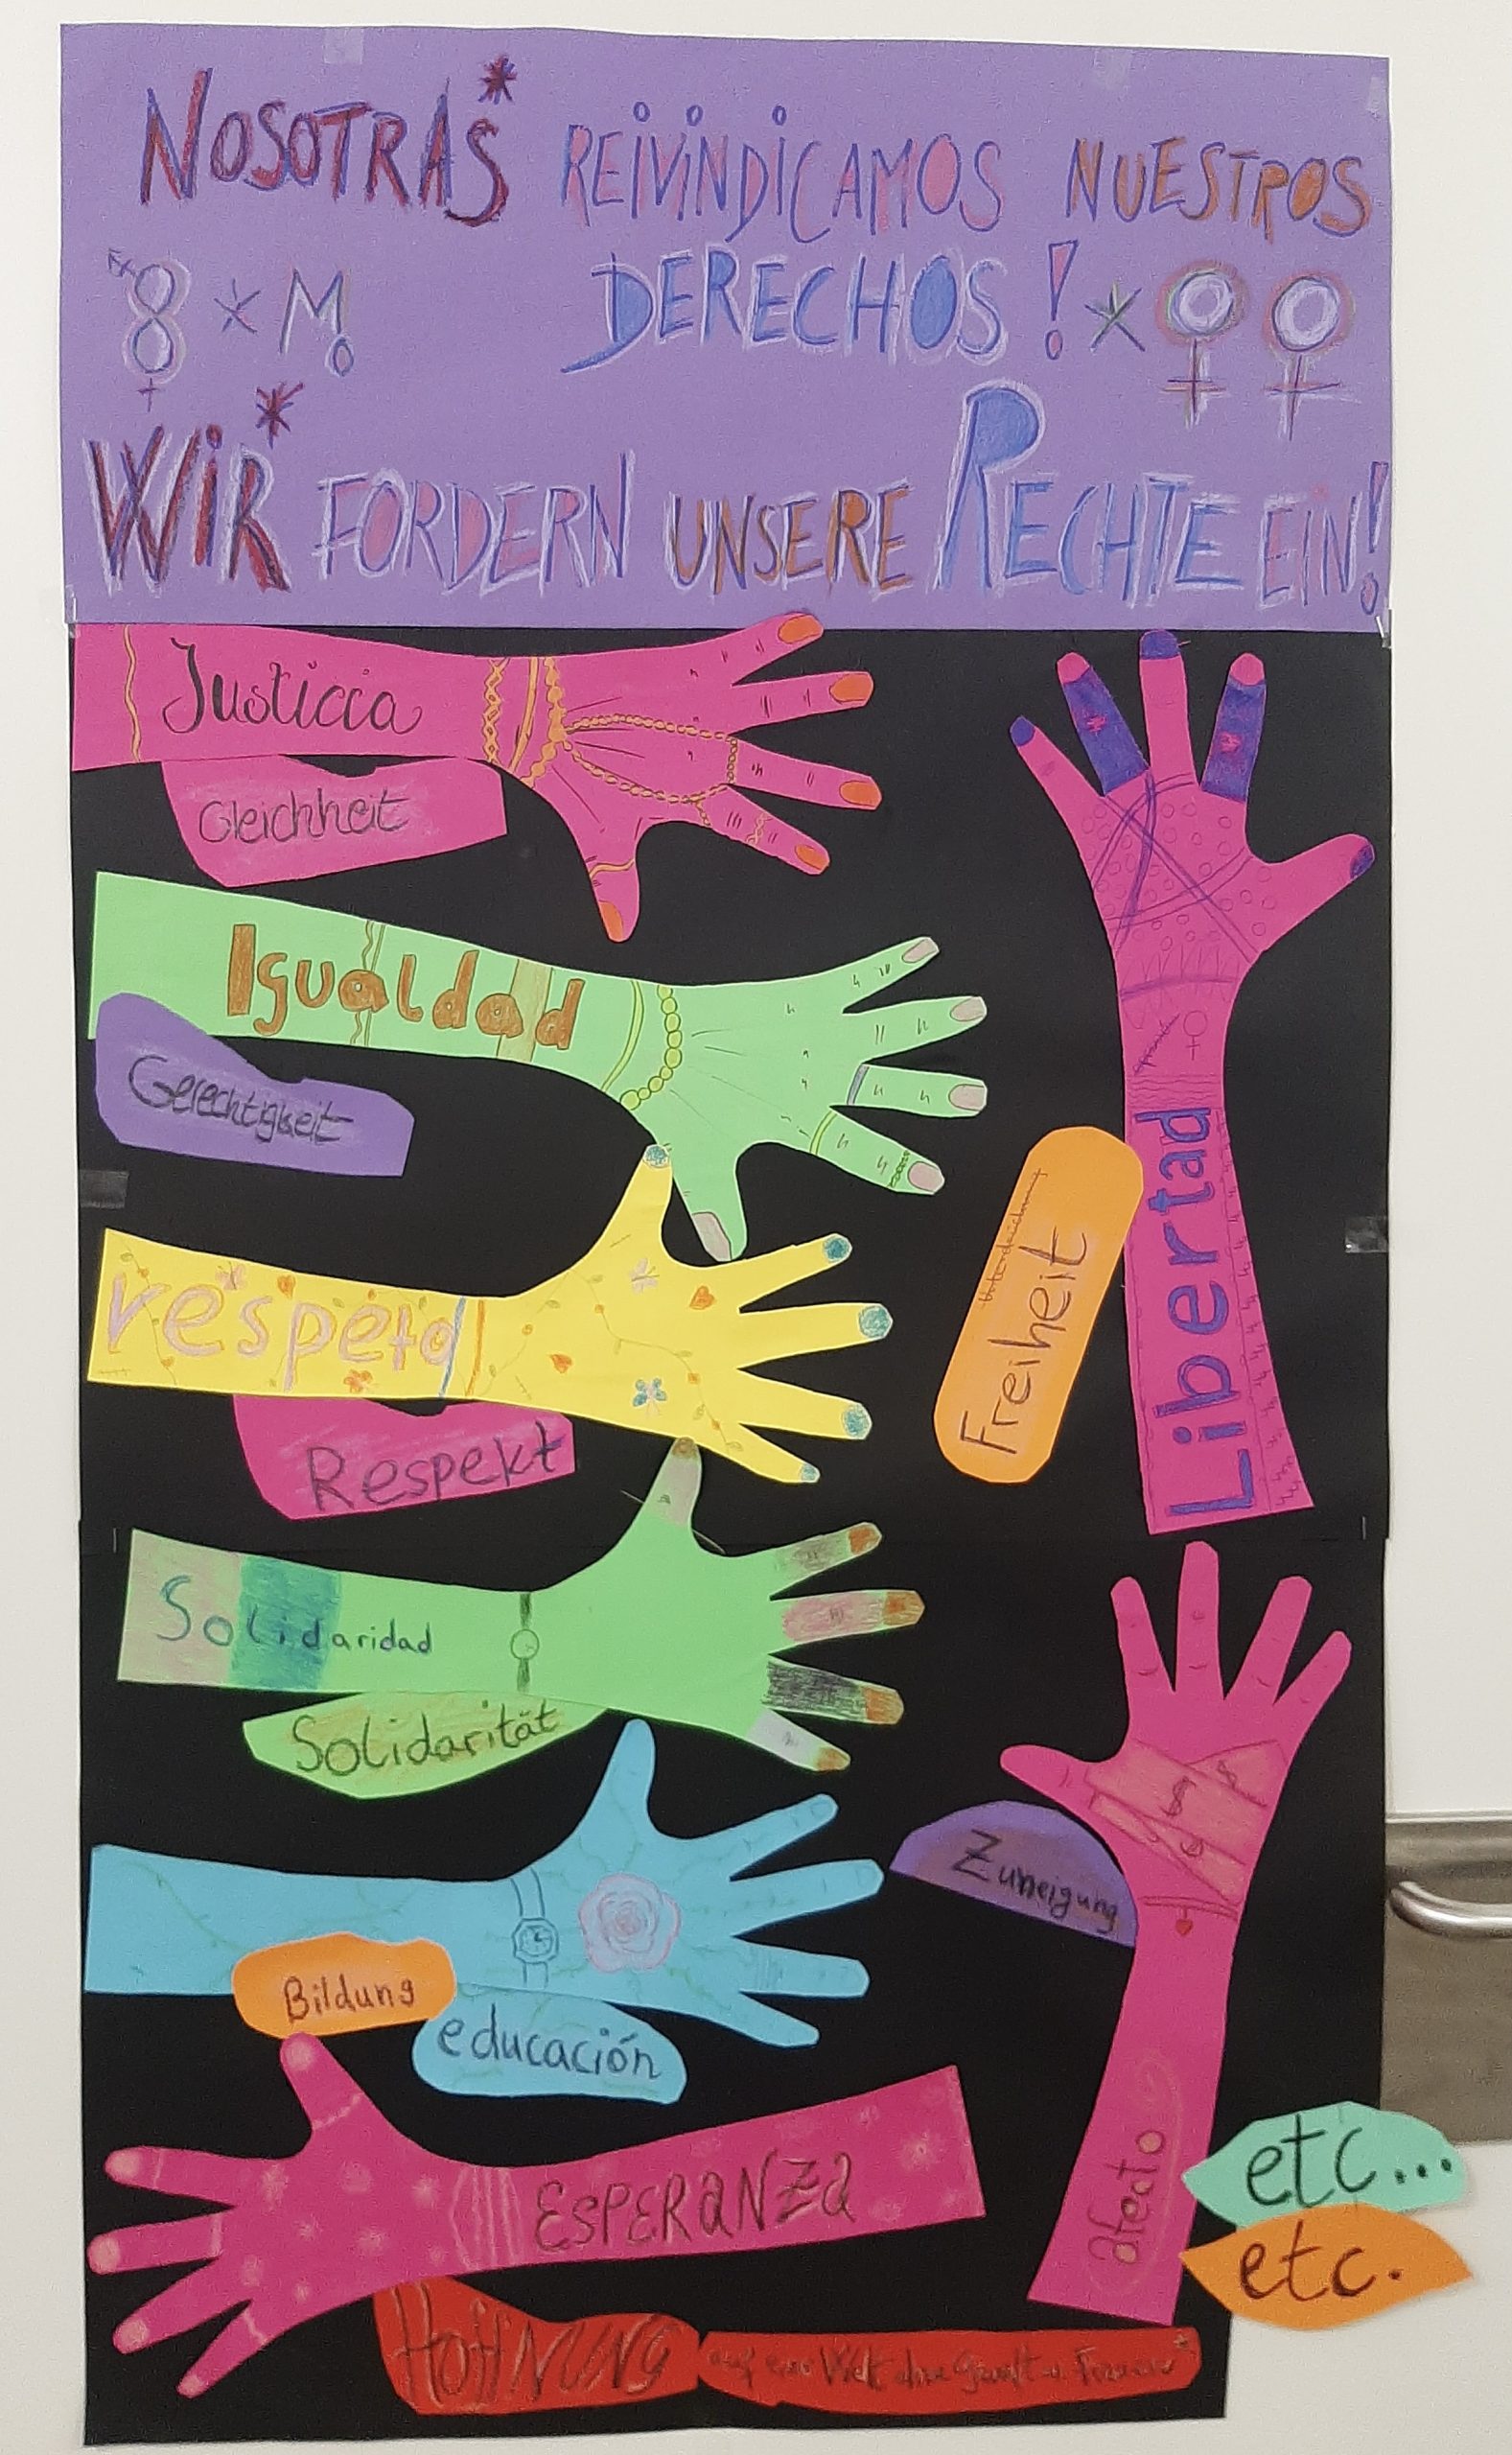 NOSOTRAS* REIVINDICAMOS NUESTROS
8 * M DERECHOS! *
WIR* FORDERN UNSERE RECHTE EIN!
Justicia
Gleichheit
Igualdad
Gerechtigkeit
respeto
Respekt
Libertad
Freiheit
Solidaridad
Solidarität
Zuneigung
afecto
Bildung
educación
ESPERANZA
etc...
etc.
HOFFNUNG auf eine Welt ohne